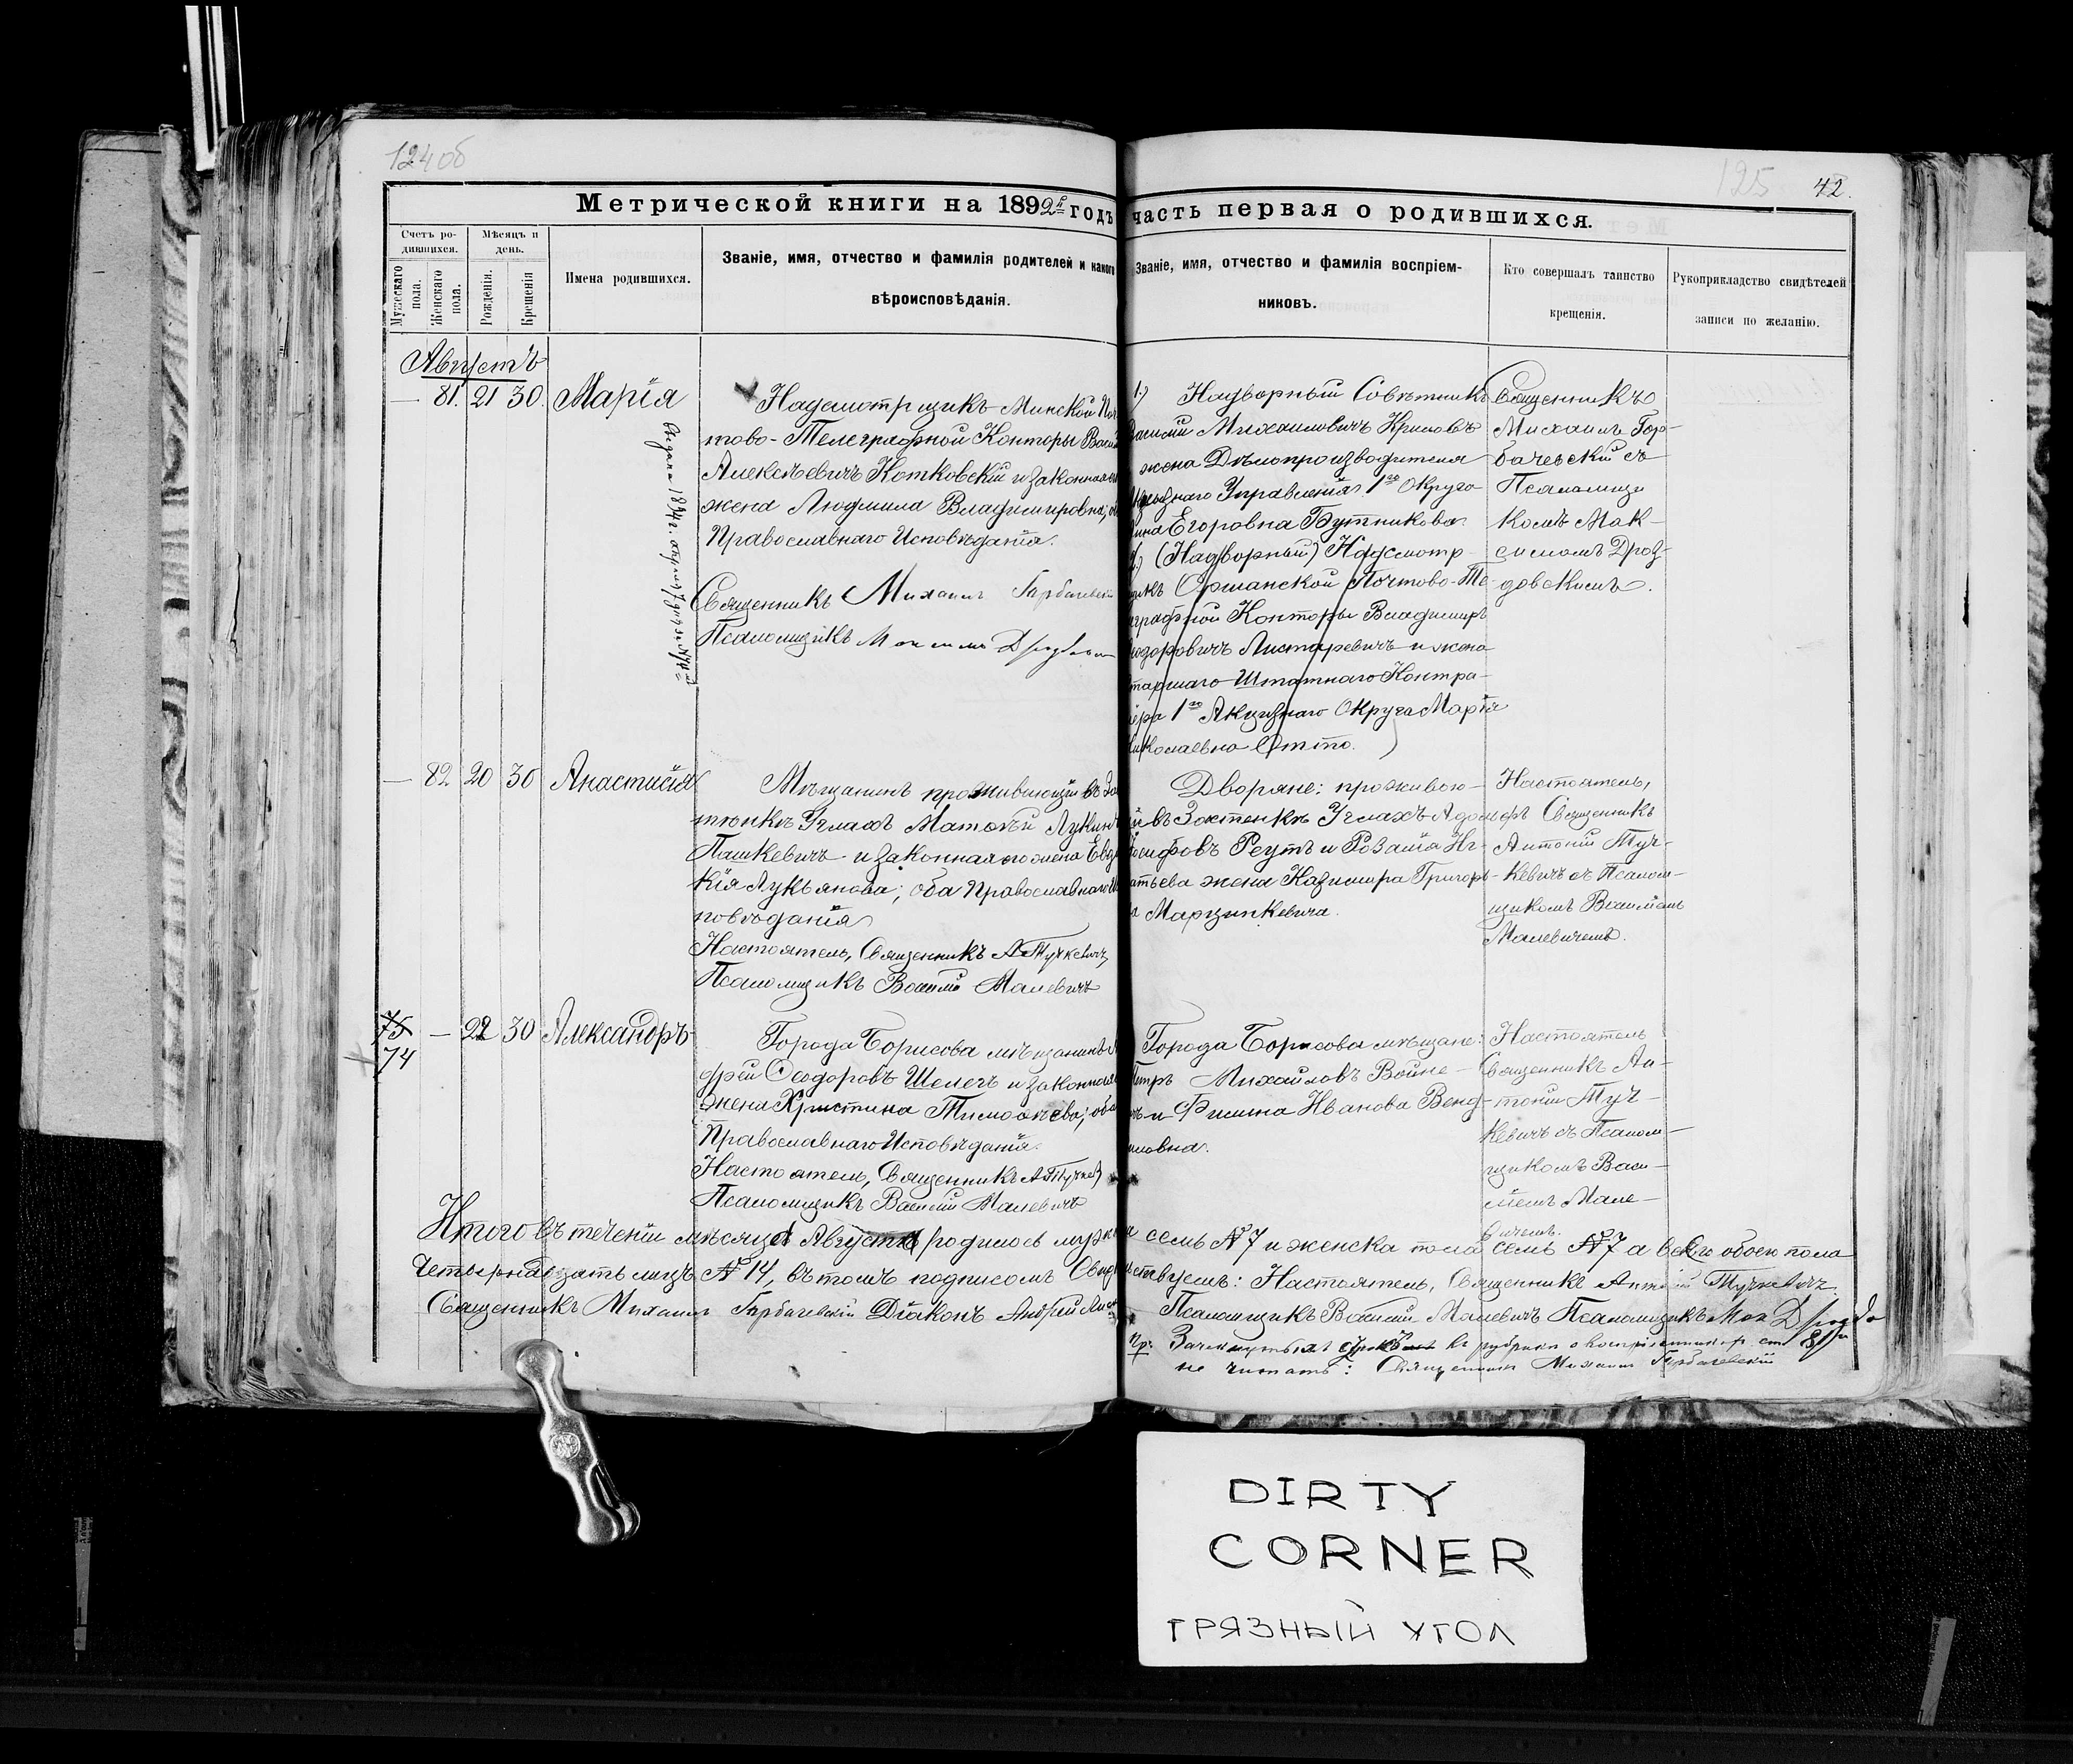 124 об
125
42.
Метрической книги на 1892й годъ часть первая о родившихся.
Счетъ родившихся.
Мужескаго пола.
Женскаго пола.
Мѣсяцъ и день.
Рожденія.
Крещенія
Имена родившихся.
Званіе, имя, отчество и фамилія родителей и какого
вѣроисповѣданія.
Званіе, имя, отчество и фамилія воспріем-
никовъ.
Кто совершалъ таинство
крещенія.
Рукоприкладство свидѣтелей
записи по желанію.
Августъ
— 81. 21 30. Марія
Надсмотрщикъ Минской По
тово-Телеграфной Конторы Васи
Алексѣевичъ Котковскій и законная
жена Людмила Владимировна; об
Православнаго Исповѣданія.
Священникъ Михаилъ Горбачевскій
Псаломщикъ Максимъ
1.) Надворный Совѣтникъ
Василій Михаиловичъ Криловъ
жена Дѣлопроизводителя
Управленія 1го Округа
Егоровна Бутникова
2.) (Надворный) Надсмотр-
щикъ Оршанской Почтово-Те-
леграфной Конторы Владимиръ
Ѳеодоровичъ Листаревичъ и жена
старшаго Штатнаго Контра-
лера 1го Акцизнаго Округа Марія
Николаевна Отто. )
Священникъ
Михаилъ Гор-
бачевскій съ
Псаломщи
комъ Мак-
симомъ Дроз-
довскимъ.
— 82 20 30 Анастасія
Мѣщанинъ проживающій въ За
стѣнкѣ Углахъ Матѳѣй Лукинъ
Пашкевичъ и законная его жена Евдо
кія Лукьянова; оба Православнаго Ис
повѣданія
Настоятель, Священникъ А Тучкевичъ,
Псаломщикъ Василій Малевичъ
Дворяне: проживаю-
щій въ Застенкѣ Углахъ Адамъ
Іосифовъ Реутъ и Розалія Иг-
натьева жена Казимира Григорь-
Марцинкевича.
Настоятель,
Священникъ
Антоній Туч-
кевичъ съ Псалом-
щикомъ Василіемъ
Малевичемъ.
75
74
— 22 30 Александръ
Города Борисова мѣщанинъ Ан
дрей Ѳеодоровъ Шелегъ и законная
жена Христина Тимоѳѣева; оба
Православнаго Исповѣданія.
Настоятель, Священникъ А Тучкев
Псаломщикъ Василій Малевичъ
Города Борисова мѣщане:
Петръ Михайловъ Война-
Иванова Венд-
Настоятель
Священникъ Ан-
тоній Туч-
кевичъ съ Псалом-
щикомъ Васи-
ліемъ Мале-
вичемъ.
Итого въ теченіи мѣсяца Августа родилось мужска семь № 7 и женска пола семь № 7 а всего обоего пола
Четырнадцать лицъ № 14, въ томъ подписомъ Свидѣтельствуемъ: Настоятель, Священникъ Антоній Тучкевичъ.
Священникъ Михаилъ Горбачевскій Діаконъ Андрей Псаломщикъ Василій Малевичъ Псаломщикъ Мак
Пр: Зачеркнутыхъ въ рубрикѣ о воспріемникахъ ст 81й
не читать: Священникъ Михаилъ Горбачевскій
DIRTY
CORNER
ГРЯЗНЫЙ УГОЛ